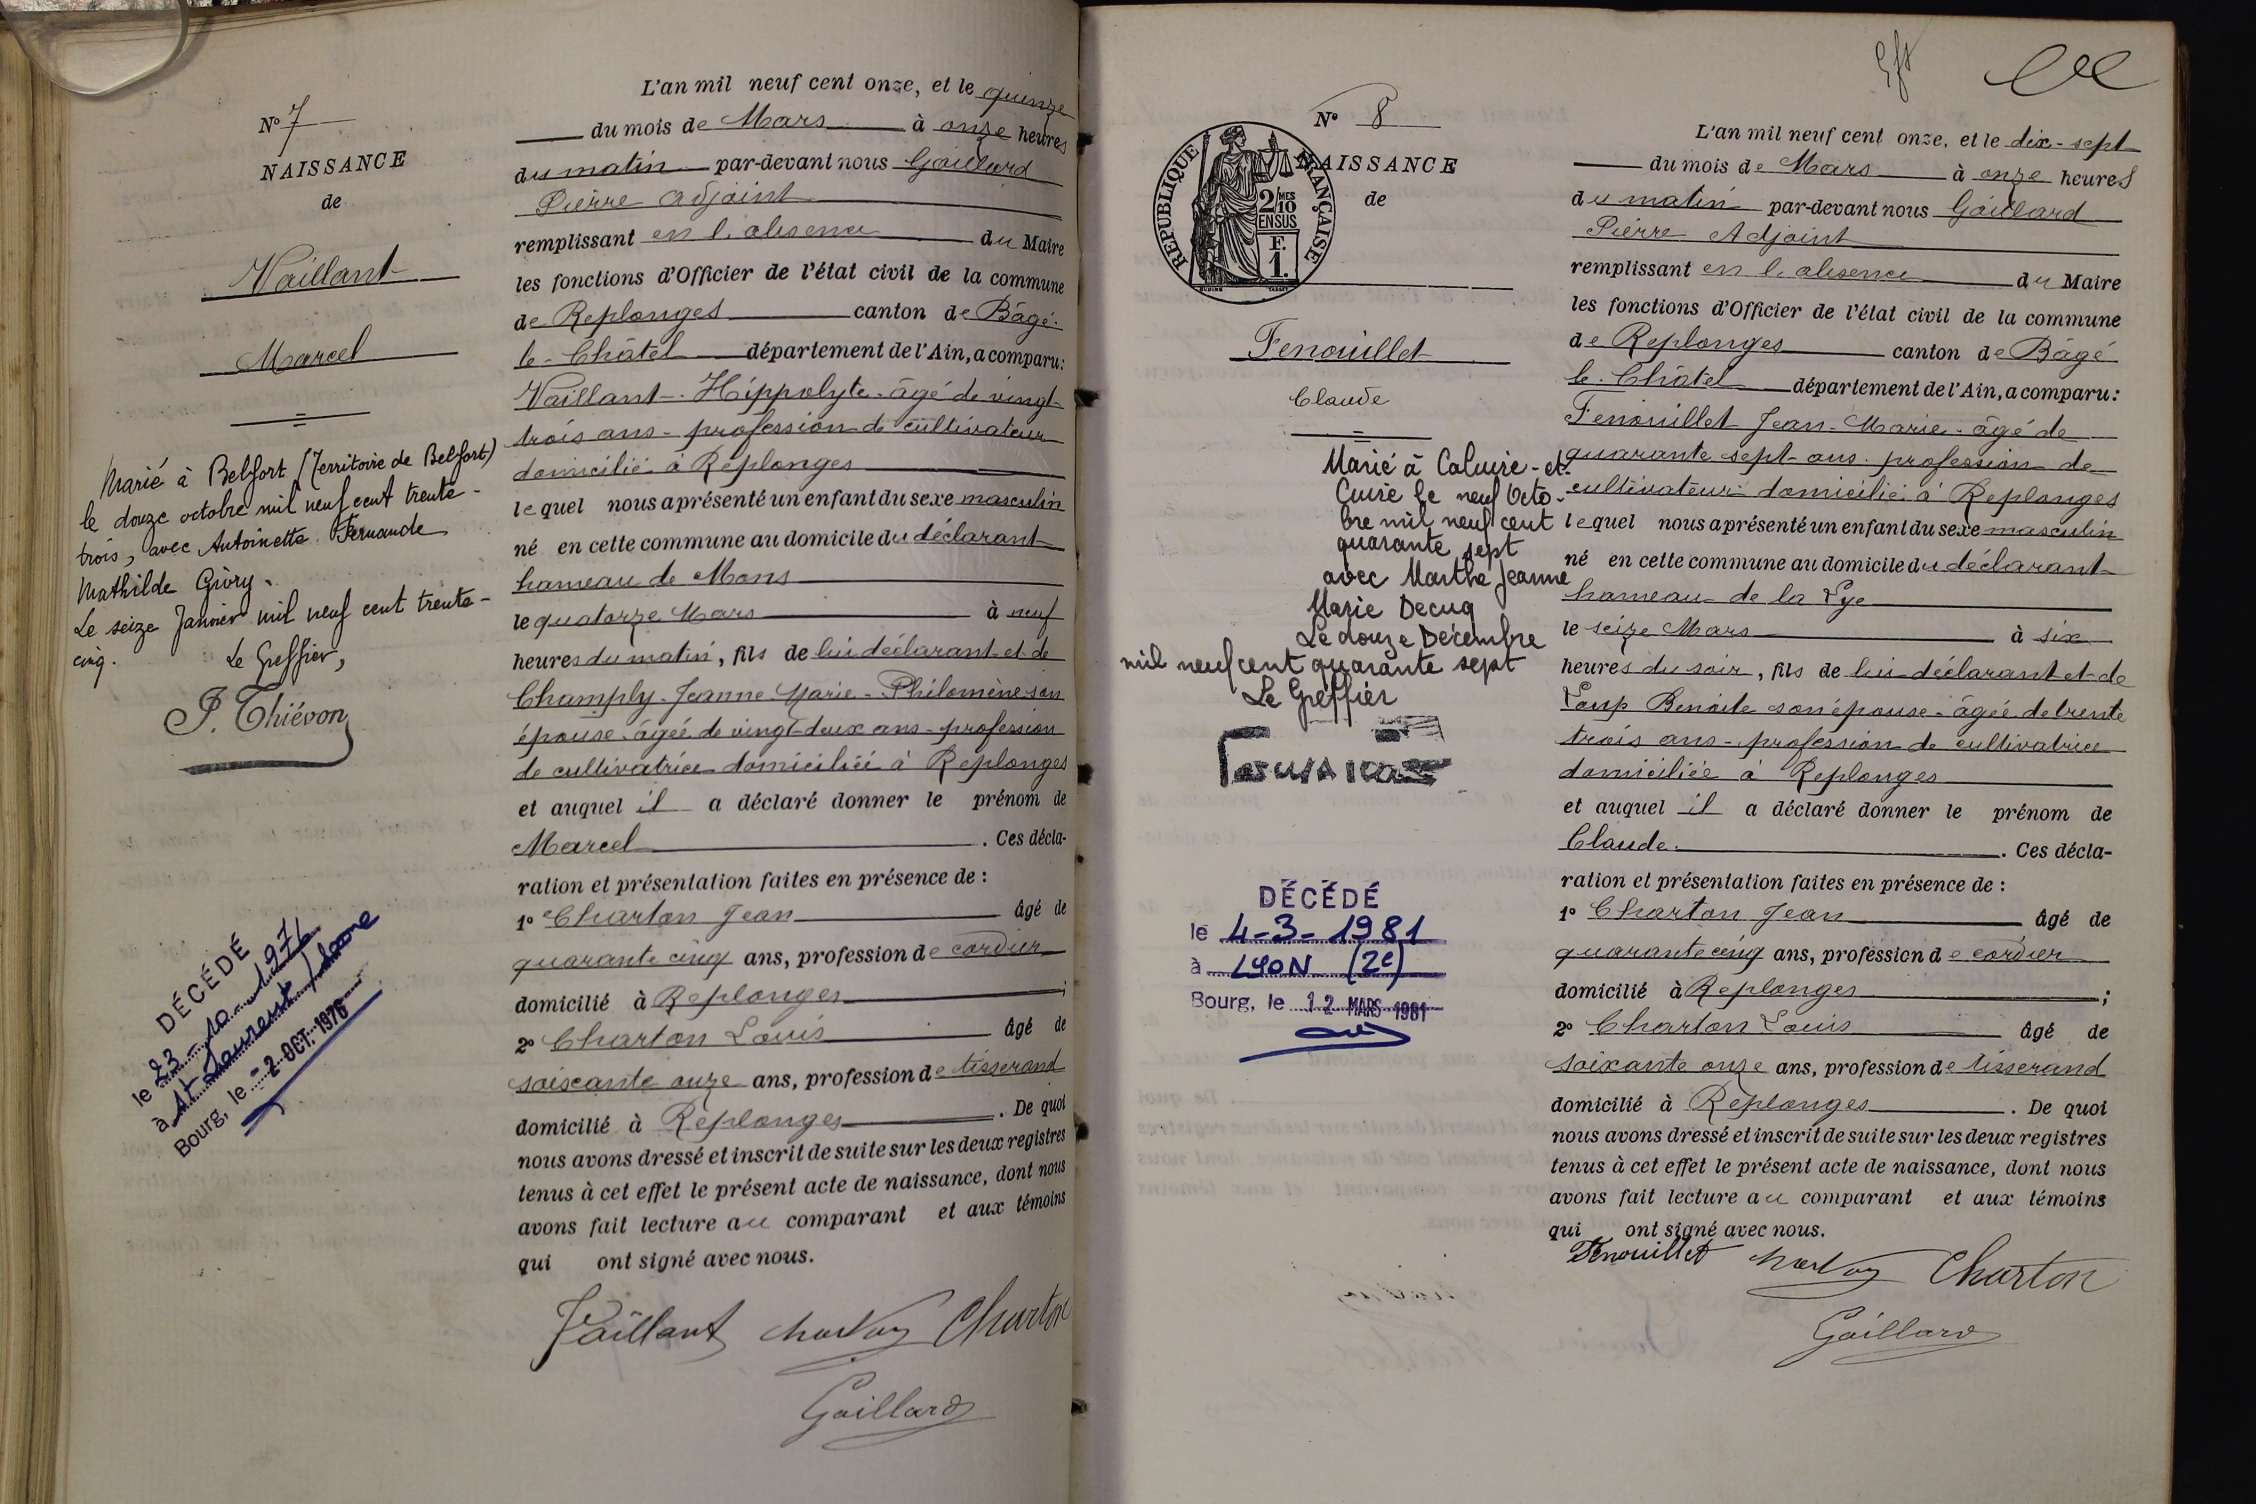 N° 7
NAISSANCE
de
Vaillant
Marcel
Marié à Belfort (Territoire de Belfort)
le douze octobre mil neuf cent trente-
trois, avec Antoinette Fernande
Mathilde Givry.
Le seize Janvier mil neuf cent trente-
cinq.
Le Greffier,
P. Thiévon
DÉCÉDÉ
le 23-10-1976
à St Laurent s/Saone
Bourg, le -2 OCT. 1976
L'an mil neuf cent onze, et le quinze
du mois de Mars à onze heures
du matin par-devant nous Gaillard
Pierre Adjoint
remplissant en l'absence du Maire
les fonctions d'Officier de l'état civil de la commune
de Replonges canton de Bâgé-
le-Châtel département de l'Ain, a comparu:
Vaillant Hippolyte âgé de vingt
trois ans - profession de cultivateur
domicilié à Replonges
lequel nous a présenté un enfant du sexe masculin
né en cette commune au domicile du déclarant
hameau de Mons
le quatorze Mars à neuf
heures du matin, fils de lui déclarant et de
Champly Jeanne Marie-Philomène son
épouse âgée de vingt-deux ans - profession
de cultivatrice domiciliée à Replonges
et auquel il a déclaré donner le prénom de
Marcel. Ces décla-
ration et présentation faites en présence de :
1° Charton Jean âgé de
quarante cinq ans, profession de cordier
domicilié à Replonges ;
2° Charton Louis âgé de
soixante onze ans, profession de tisserand
domicilié à Replonges. De quoi
nous avons dressé et inscrit de suite sur les deux registres
tenus à cet effet le présent acte de naissance, dont nous
avons fait lecture au comparant et aux témoins
qui ont signé avec nous.
Vaillant Charton Charton
Gaillard
N° 8
NAISSANCE
de
REPUBLIQUE FRANÇAISE
2/10 MES
EN SUS
F.
1.
Fenouillet
Claude
Marié à Caluire-et-
Cuire le neuf Octo-
bre mil neuf cent
quarante sept
avec Marthe Jeanne
Marie Decuq
Le douze Décembre
mil neuf cent quarante sept
Le Greffier
DÉCÉDÉ
le 4-3-1981
à LYON (2e)
Bourg, le 12 MARS 1981
L'an mil neuf cent onze, et le dix-sept
du mois de Mars à onze heures
du matin par-devant nous Gaillard
Pierre Adjoint
remplissant en l'absence du Maire
les fonctions d'Officier de l'état civil de la commune
de Replonges canton de Bâgé
le-Châtel département de l'Ain, a comparu:
Fenouillet Jean-Marie âgé de
quarante sept ans profession de
cultivateur domicilié à Replonges
lequel nous a présenté un enfant du sexe masculin
né en cette commune au domicile du déclarant
hameau de la Lye
le seize Mars à six
heures du soir, fils de lui déclarant et de
Loup Benoite son épouse âgée de trente
trois ans - profession de cultivatrice
domiciliée à Replonges
et auquel il a déclaré donner le prénom de
Claude. Ces décla-
ration et présentation faites en présence de :
1° Charton Jean âgé de
quarante cinq ans, profession de cordier
domicilié à Replonges ;
2° Charton Louis âgé de
soixante onze ans, profession de tisserand
domicilié à Replonges. De quoi
nous avons dressé et inscrit de suite sur les deux registres
tenus à cet effet le présent acte de naissance, dont nous
avons fait lecture au comparant et aux témoins
qui ont signé avec nous.
Fenouillet Charton Charton
Gaillard